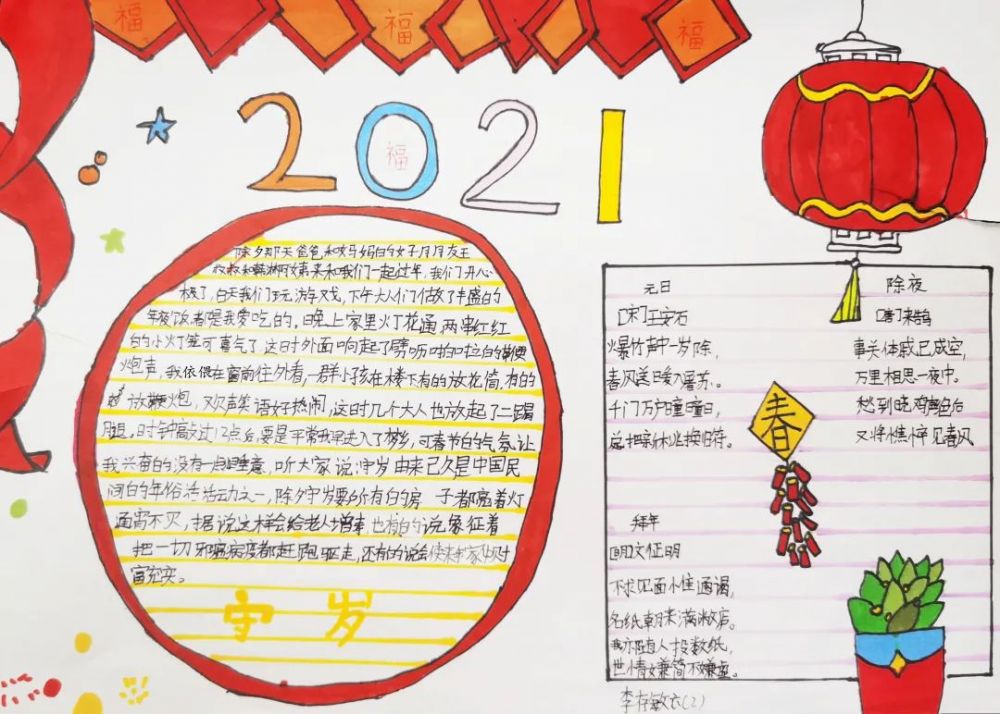 福
福
福
2021
福
除夕那天爸爸和妈妈的好朋友王
叔叔和韩淋阿姨弟弟来和我们一起过年,我们开心
极了,白天我们玩游戏,下午大人们做了丰盛的
年夜饭,都是我爱吃的,晚上家里灯花通,两串红红
的小灯笼可喜气了,这时外面响起了劈唎啪啦的鞭
炮声,我依偎在窗前往外看,一群小孩在楼下有的放花筒,有的
放鞭炮,欢声笑语好热闹,这时几个大人也放起了二踢
脚,时钟敲过12点后,要是平常我早进入了梦乡,可春节的气氛让
我兴奋的没有一点睡意,听大家说,守岁由来已久是中国民
间的年俗活动之一,除夕守岁要所有的房子都亮着灯
通宵不灭,据说这样会给老人增寿,也有的说象征着
把一切邪瘟病疫都赶跑驱走,还有的说会使来年家中财
富充实。
守岁
元日
[宋]王安石
爆竹声中一岁除,
春风送日暖入屠苏。
千门万户曈曈日,
总把新桃换旧符。
拜年
[明]文征明
不求见面惟通谒,
名纸朝来满敝庐。
我亦随人投数纸,
世情嫌简不嫌虚。
除夜
[唐]来鹄
事关休戚已成空,
万里相思一夜中。
愁到晓鸡声绝后
又将憔悴见春风
春